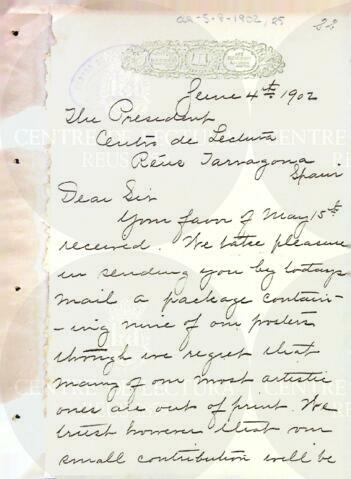 aa-5-8-1902, 25
22
June 4th 1902
The President
Centro de Lectura
Réus Tarragona
Spain
Dear Sir
Your favor of May 15th
received. We take pleasure
in sending you by todays
mail a package contain-
-ing nine of our posters
though we regret that
many of our most artistic
ones are out of print. We
trust however that our
small contribution will be
CENTRE DE LECTURA
REUS
CENTRE DE LECTURA
REUS